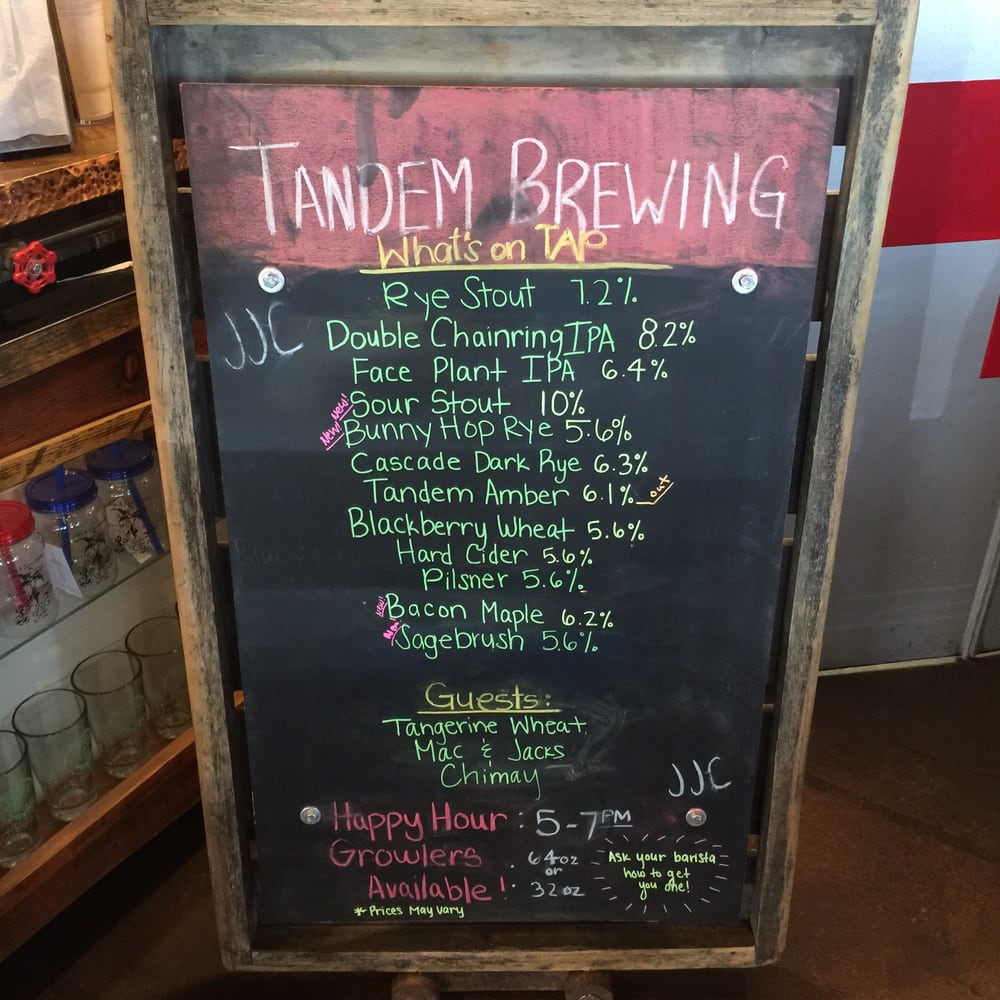 TANDEM BREWING
What's on TAP
Rye Stout 7.2%
JJC
Double Chainring IPA 8.2%
Face Plant IPA 6.4%
New! Sour Stout 10%
New! Bunny Hop Rye 5.6%
Cascade Dark Rye 6.3%
Tandem Amber 6.1% out
Blackberry Wheat 5.6%
Hard Cider 5.6%
Pilsner 5.6%
New! Bacon Maple 6.2%
New Sagebrush 5.6%
Guests:
Tangerine Wheat
Mac & Jacks
Chimay
JJC
Happy Hour : 5-7PM
Growlers : 64oz
or
Available! : 32oz
* Prices May Vary
Ask your barista
how to get
you one!